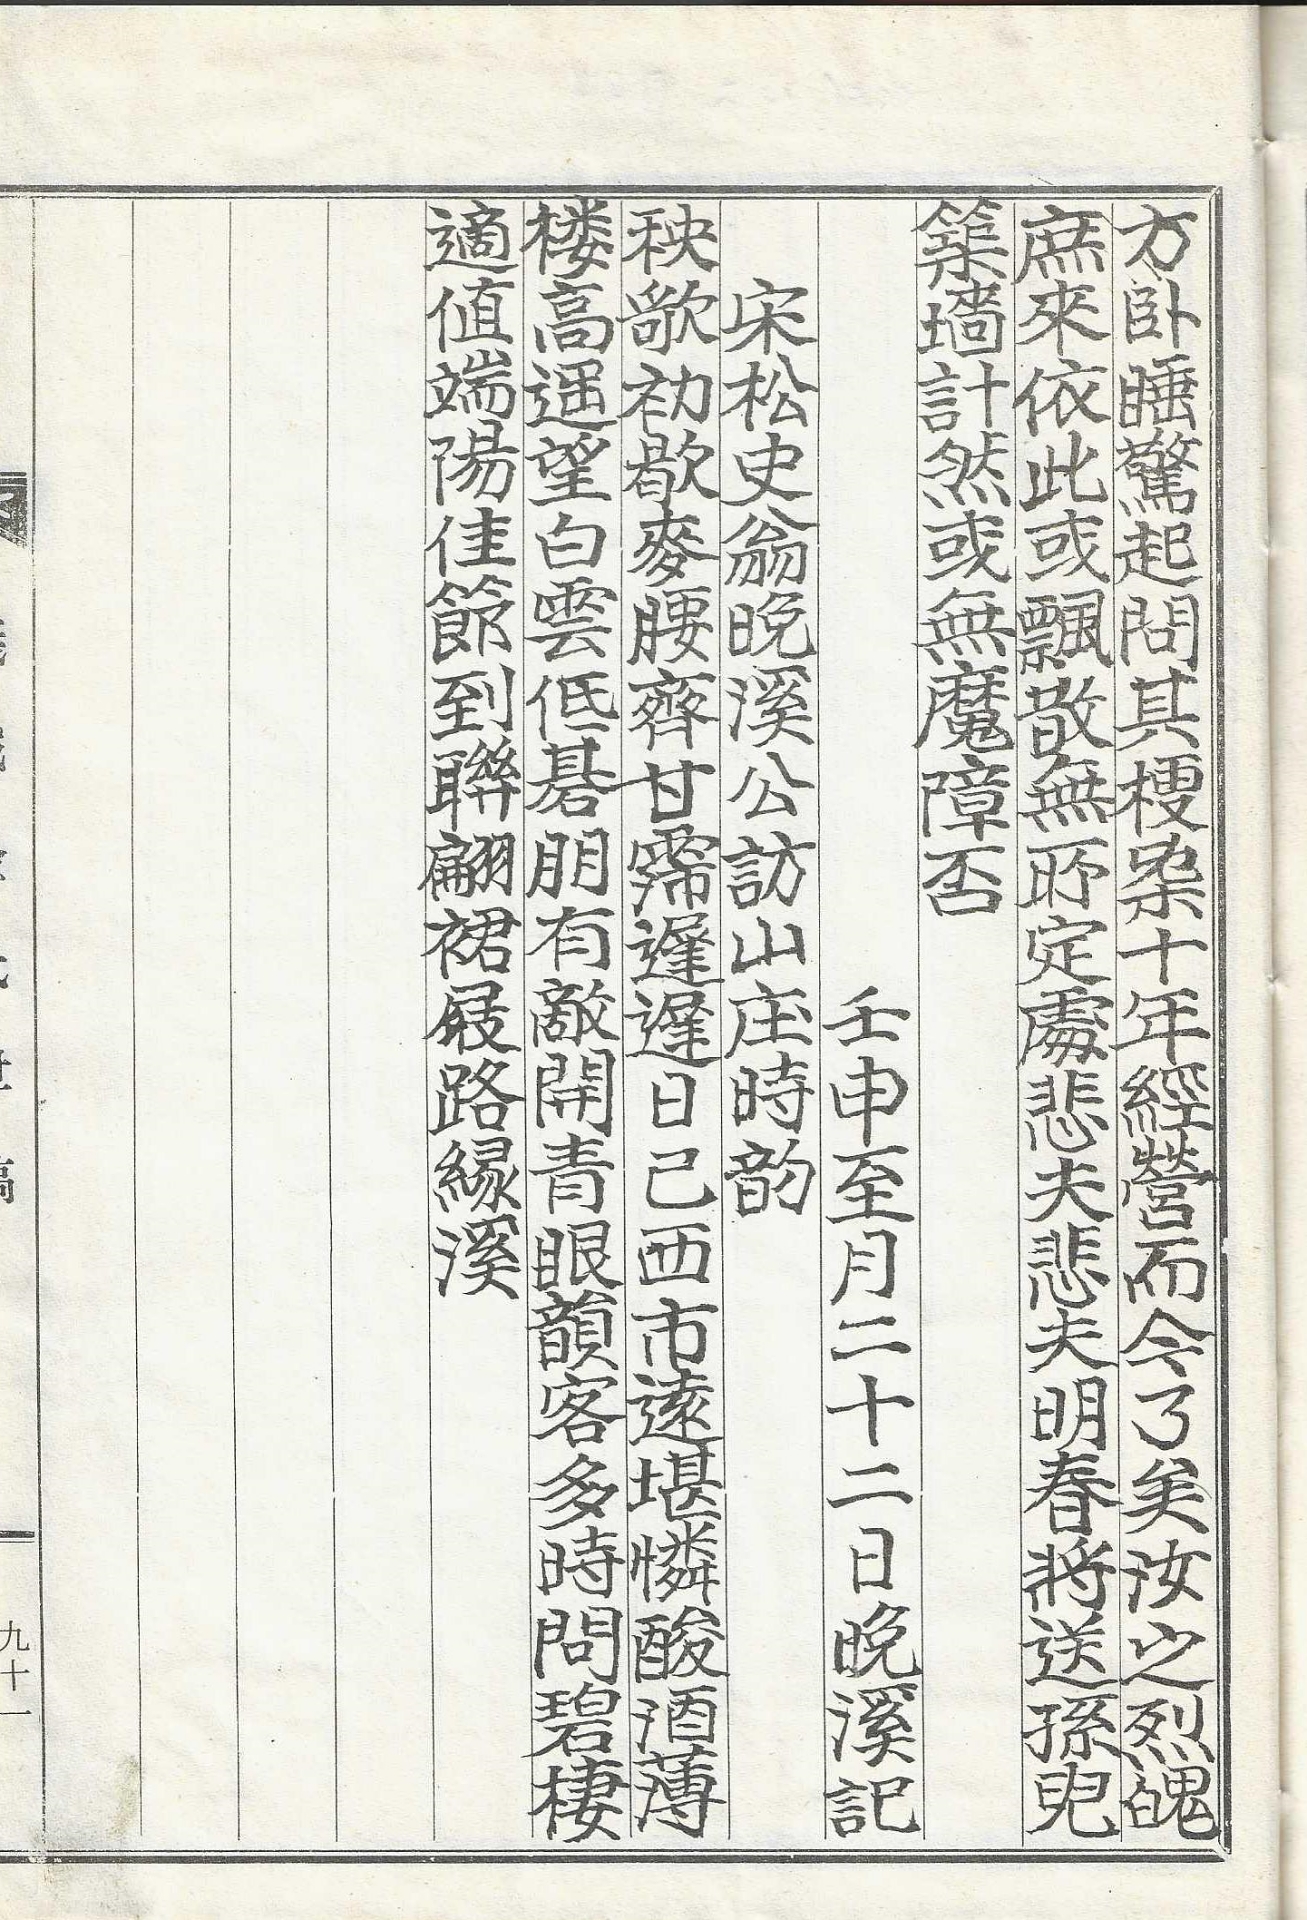 方臥睡驚起問其梗槩十年經營而今了矣汝之烈魄
庶來依此或飄散無所定處悲夫悲夫明春將送孫兒
築墻計然或無魔障否
壬申至月二十二日晩溪記
宋松史翁晩溪公訪山庄時韵
秧歌初歇麥腰齊甘霈遲遲日已西市遠堪憐酸酒薄
楼高遥望白雲低碁朋有敵開青眼韻客多時問碧棲
適値端陽佳節到聯翩裙屐路緣溪
九十一